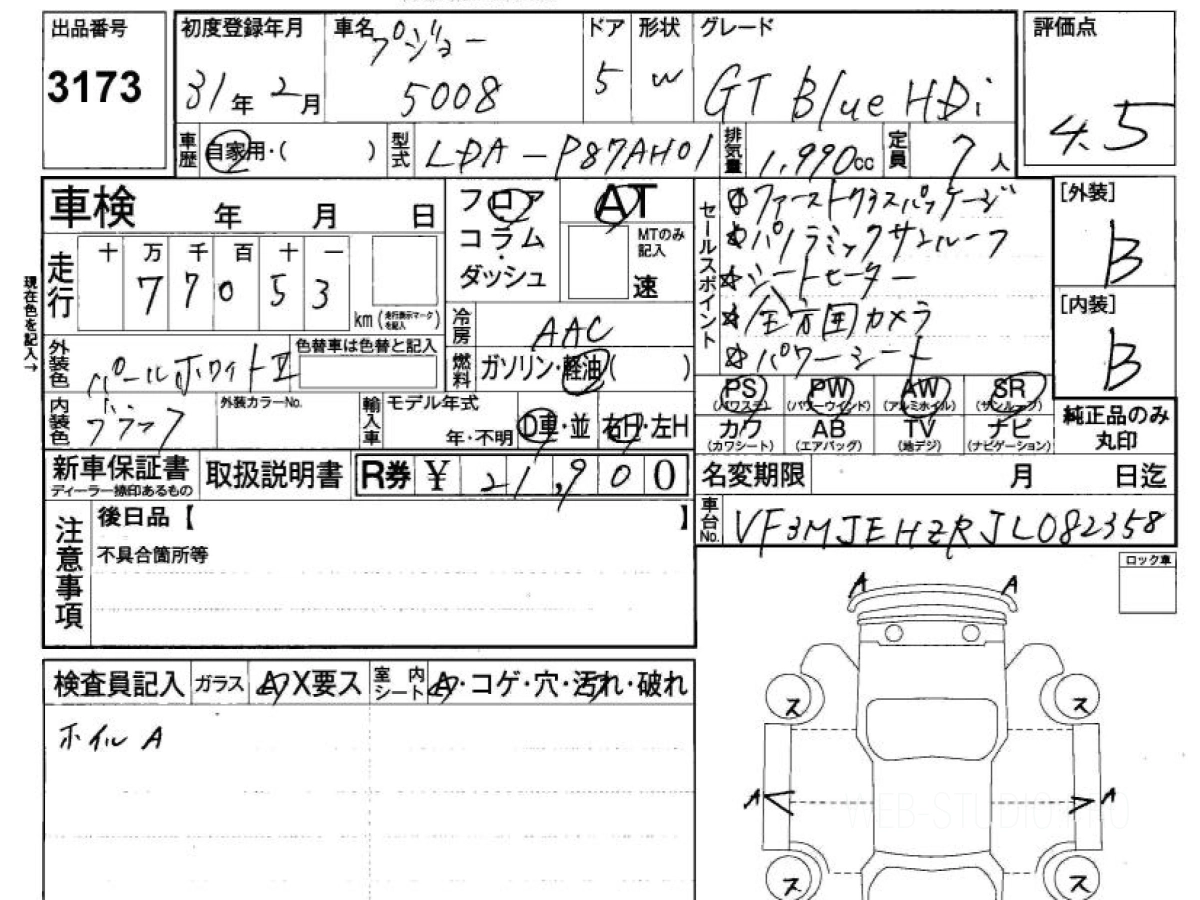 出品番号
3173
初度登録年月
31年 2月
車名
プジョー
5008
ドア
5
形状
W
グレード
GT BlueHDi
評価点
4.5
車歴
自家用・( )
型式
LDA-P87AH01
排気量
1,990cc
定員
7人
車検 年 月 日
フロア
コラム
・
ダッシュ
AT
MTのみ
記入
速
セールスポイント
☆ファーストクラスパッケージ
☆パノラミックサンルーフ
☆シートヒーター
☆全方囲カメラ
☆パワーシート
[外装]
B
[内装]
B
現在色を記入→
走行
十 万 千 百 十 一
7 7 0 5 3
km (走行表示マークを記入)
冷房
AAC
外装色
パールホワイトII
色替車は色替と記入
燃料
ガソリン・軽油( )
PS
(パワステ)
PW
(パワーウインド)
AW
(アルミホイル)
SR
(サンルーフ)
カワ
(カワシート)
AB
(エアバッグ)
TV
(地デジ)
ナビ
(ナビゲーション)
純正品のみ
丸印
内装色
ブラック
外装カラーNo.
輸入車
モデル年式
年・不明
D車・並
右H・左H
新車保証書
ディーラー捺印あるもの
取扱説明書
R券 ¥ 21,900
名変期限 月 日迄
車台No.
VF3MJEHZRJL082358
注意事項
後日品【 】
不具合箇所等
ロック車
検査員記入
ガラス
A・X要ス
室内
シート
A・コゲ・穴・汚れ・破れ
ホイル A
A A
ス ス
A A
ス ス
WEB-STUDIO.PRO